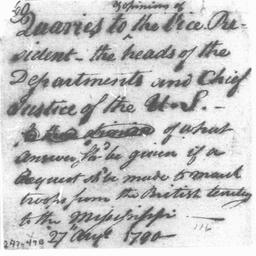 Opinions of
Quaries to the Vice Pre-
sident - the heads of the
Departments and Chief
Justice of the U.S. -
of what
answer shd be given if a
request sd be made to march
troops from the British territy
to the Mississippi. -
27th Augt 1790